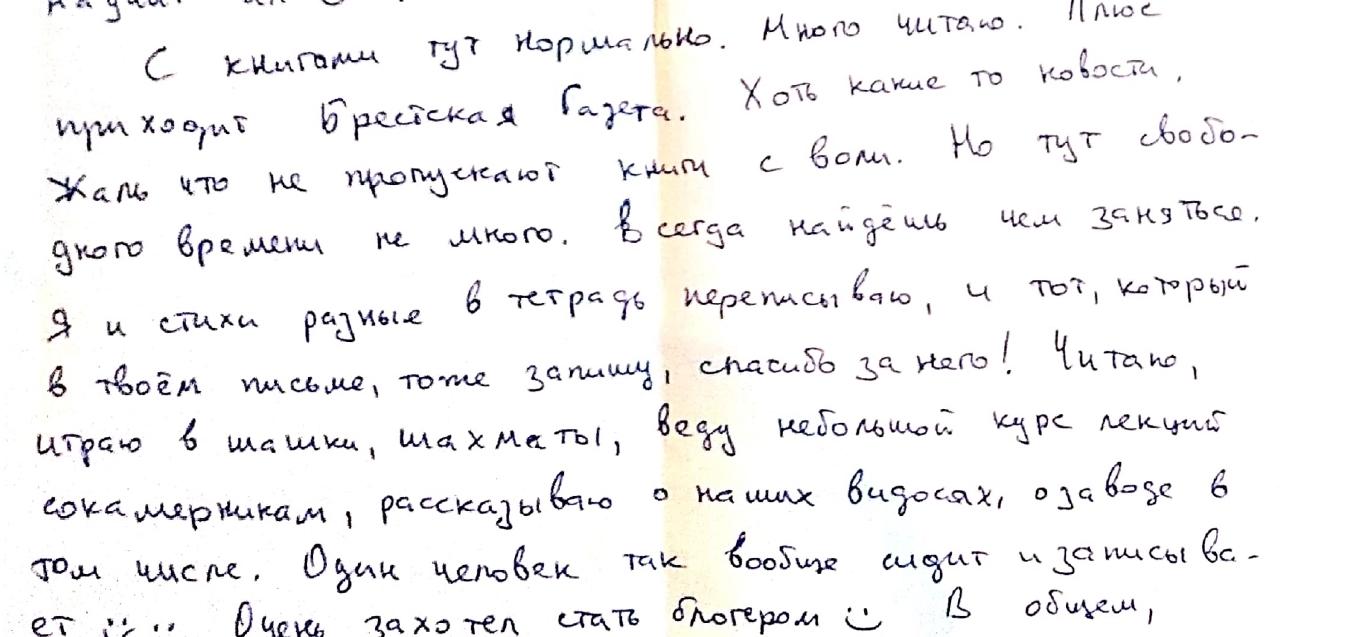 С книгами тут нормально. Много читаю. Плюс
приходит Брестская Газета. Хоть какие то новости.
Жаль что не пропускают книги с воли. Но тут свобо-
дного времени не много. Всегда найдёшь чем заняться.
Я и стихи разные в тетрадь переписываю, и тот, который
в твоём письме, тоже запишу, спасибо за него! Читаю,
играю в шашки, шахматы, веду небольшой курс лекций
сокамерникам, рассказываю о наших видосях, о заводе в
том числе. Один человек так вообще сидит и записыва-
ет :) Очень захотел стать блогером :) В общем,